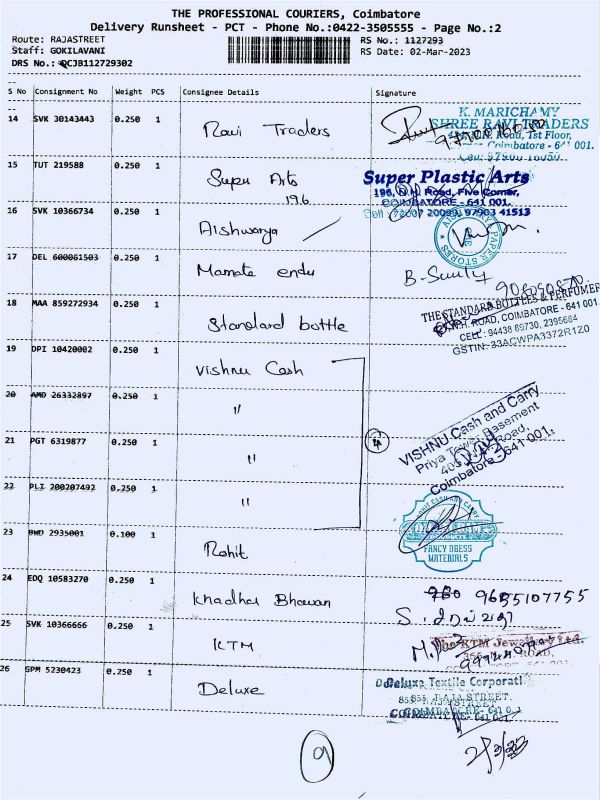 THE PROFESSIONAL COURIERS, Coimbatore
Delivery Runsheet - PCT - Phone No.:0422-3505555 - Page No.:2
Route: RAJASTREET RS No.: 1127293
Staff: GOKILAVANI RS Date: 02-Mar-2023
DRS No.: QCJB112729302
S No Consignment No Weight PCS Consignee Details Signature
14 SVK 30143443 0.250 1 Ravi Traders
K. MARICHAMY
SHREE RAVI TRADERS
Road, 1st Floor,
Coimbatore - 641 001.
15 TUT 219588 0.250 1 Super Arts
196
Super Plastic Arts
196, Road, Five Corner,
COIMBATORE - 641 001.
Cell : 72007 20099, 97903 41513
16 SVK 10366734 0.250 1 Aishwarya
PAPER STORES
17 DEL 600061503 0.250 1 Mamata endu
18 MAA 859272934 0.250 1 Standard bottle
THE STANDARD BOTTLES & PERFUMER
ROAD, COIMBATORE - 641 001
CELL : 94438 69730, 2395664
GSTIN: 33ACWPA3372R1Z0
19 DPI 10420002 0.250 1 Vishnu Cash
20 AMD 26332897 0.250 1 "
21 PGT 6319877 0.250 1 "
VISHNU Cash and Carry
Priya Tower Basement
Road,
Coimbatore - 641 001.
22 PLI 200207492 0.250 1 "
23 BWD 2935001 0.100 1 Rohit
FANCY DRESS
MATERIALS
24 EDQ 10583270 0.250 1 Khadhar Bhawan
9655107755
25 SVK 10366666 0.250 1 KTM
The KTM Jewellery Ltd.
ROAD,
26 GPM 5230423 0.250 1 Deluxe
Deluxe Textile Corporati
RAJA STREET.
COIMBATORE - 641 001
9